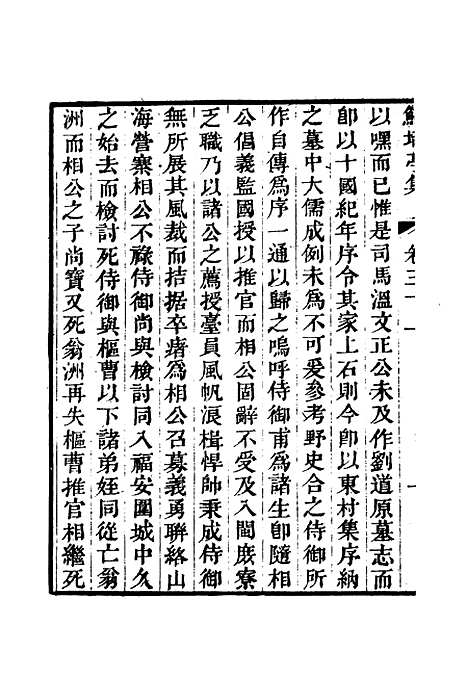 鮚埼亭集 卷三十一 一
以嘿而已惟是司馬溫文正公未及作劉道原墓志而
卽以十國紀年序令其家上石則今卽以東村集序納
之墓中大儒成例未爲不可爰參考野史合之侍御所
作自傳爲序一通以歸之嗚呼侍御甫爲諸生卽隨相
公倡義監國授以推官而相公固辭不受及入閩度寮
乏職乃以諸公之薦授臺員風帆浪楫悍帥秉成侍御
無所展其風裁而拮据卒瘏爲相公召募義勇聯絡山
海營寨相公不祿侍御尚與檢討同入福安圍城中久
之始去而檢討死侍御與樞曹以下諸弟姪同從亡翁
洲而相公之子尚寶又死翁洲再失樞曹推官相繼死